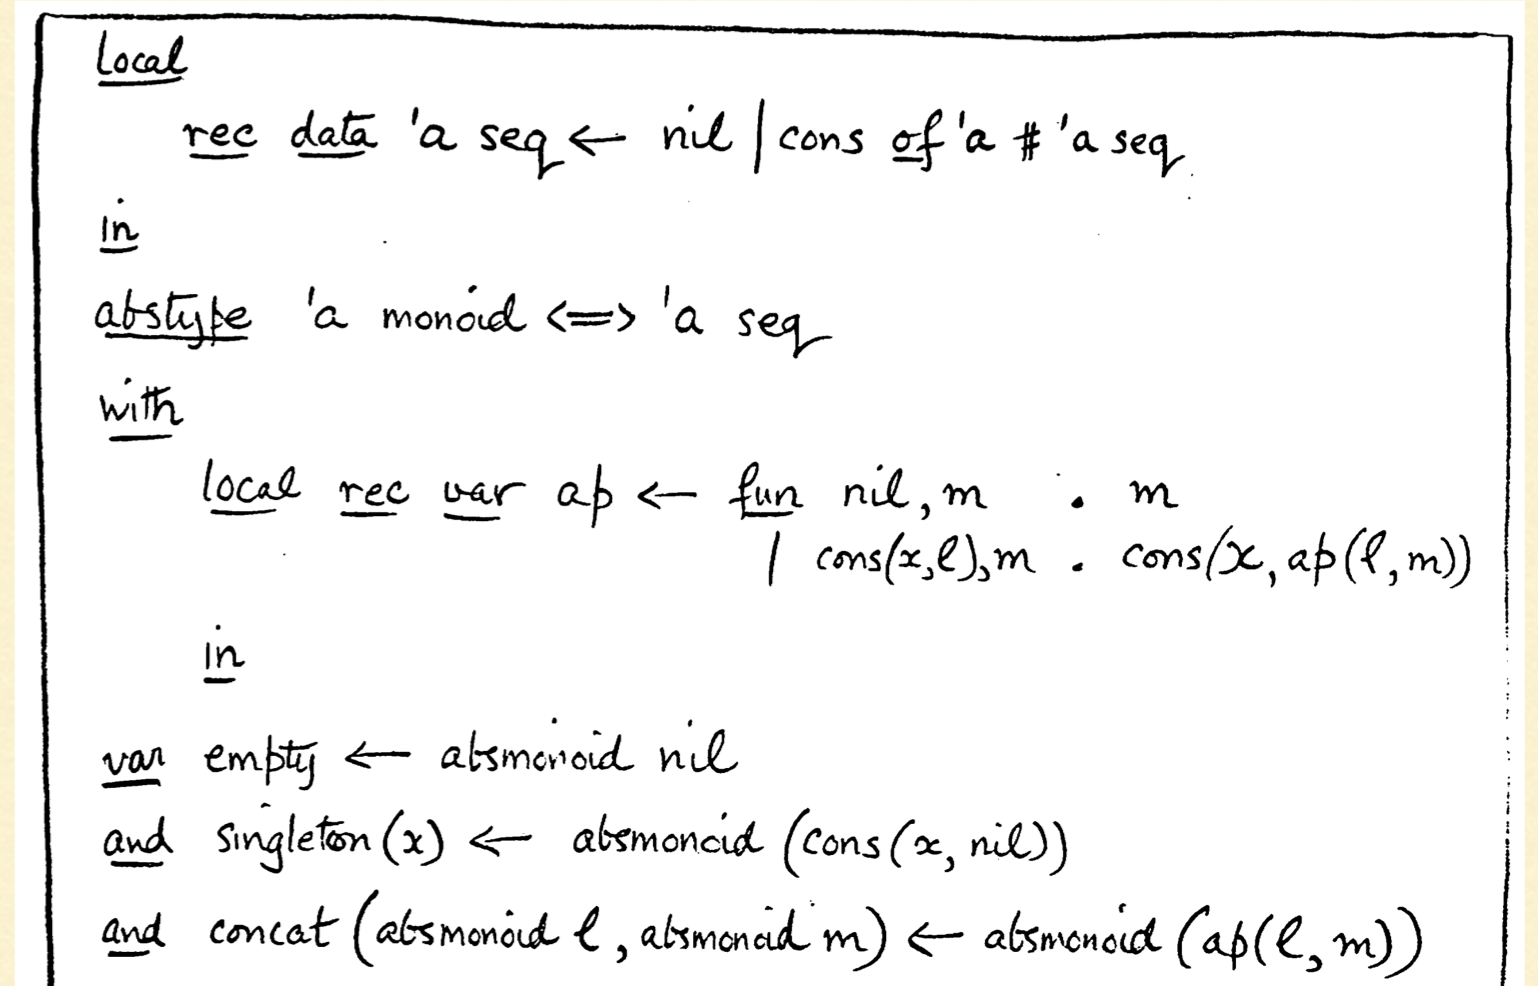 local
rec data 'a seq ← nil | cons of 'a # 'a seq
in
abstype 'a monoid <=> 'a seq
with
local rec var ap ← fun nil, m . m
| cons(x,l), m . cons(x, ap(l, m))
in
var empty ← absmonoid nil
and singleton(x) ← absmonoid (cons(x, nil))
and concat (absmonoid l, absmonoid m) ← absmonoid (ap(l, m))